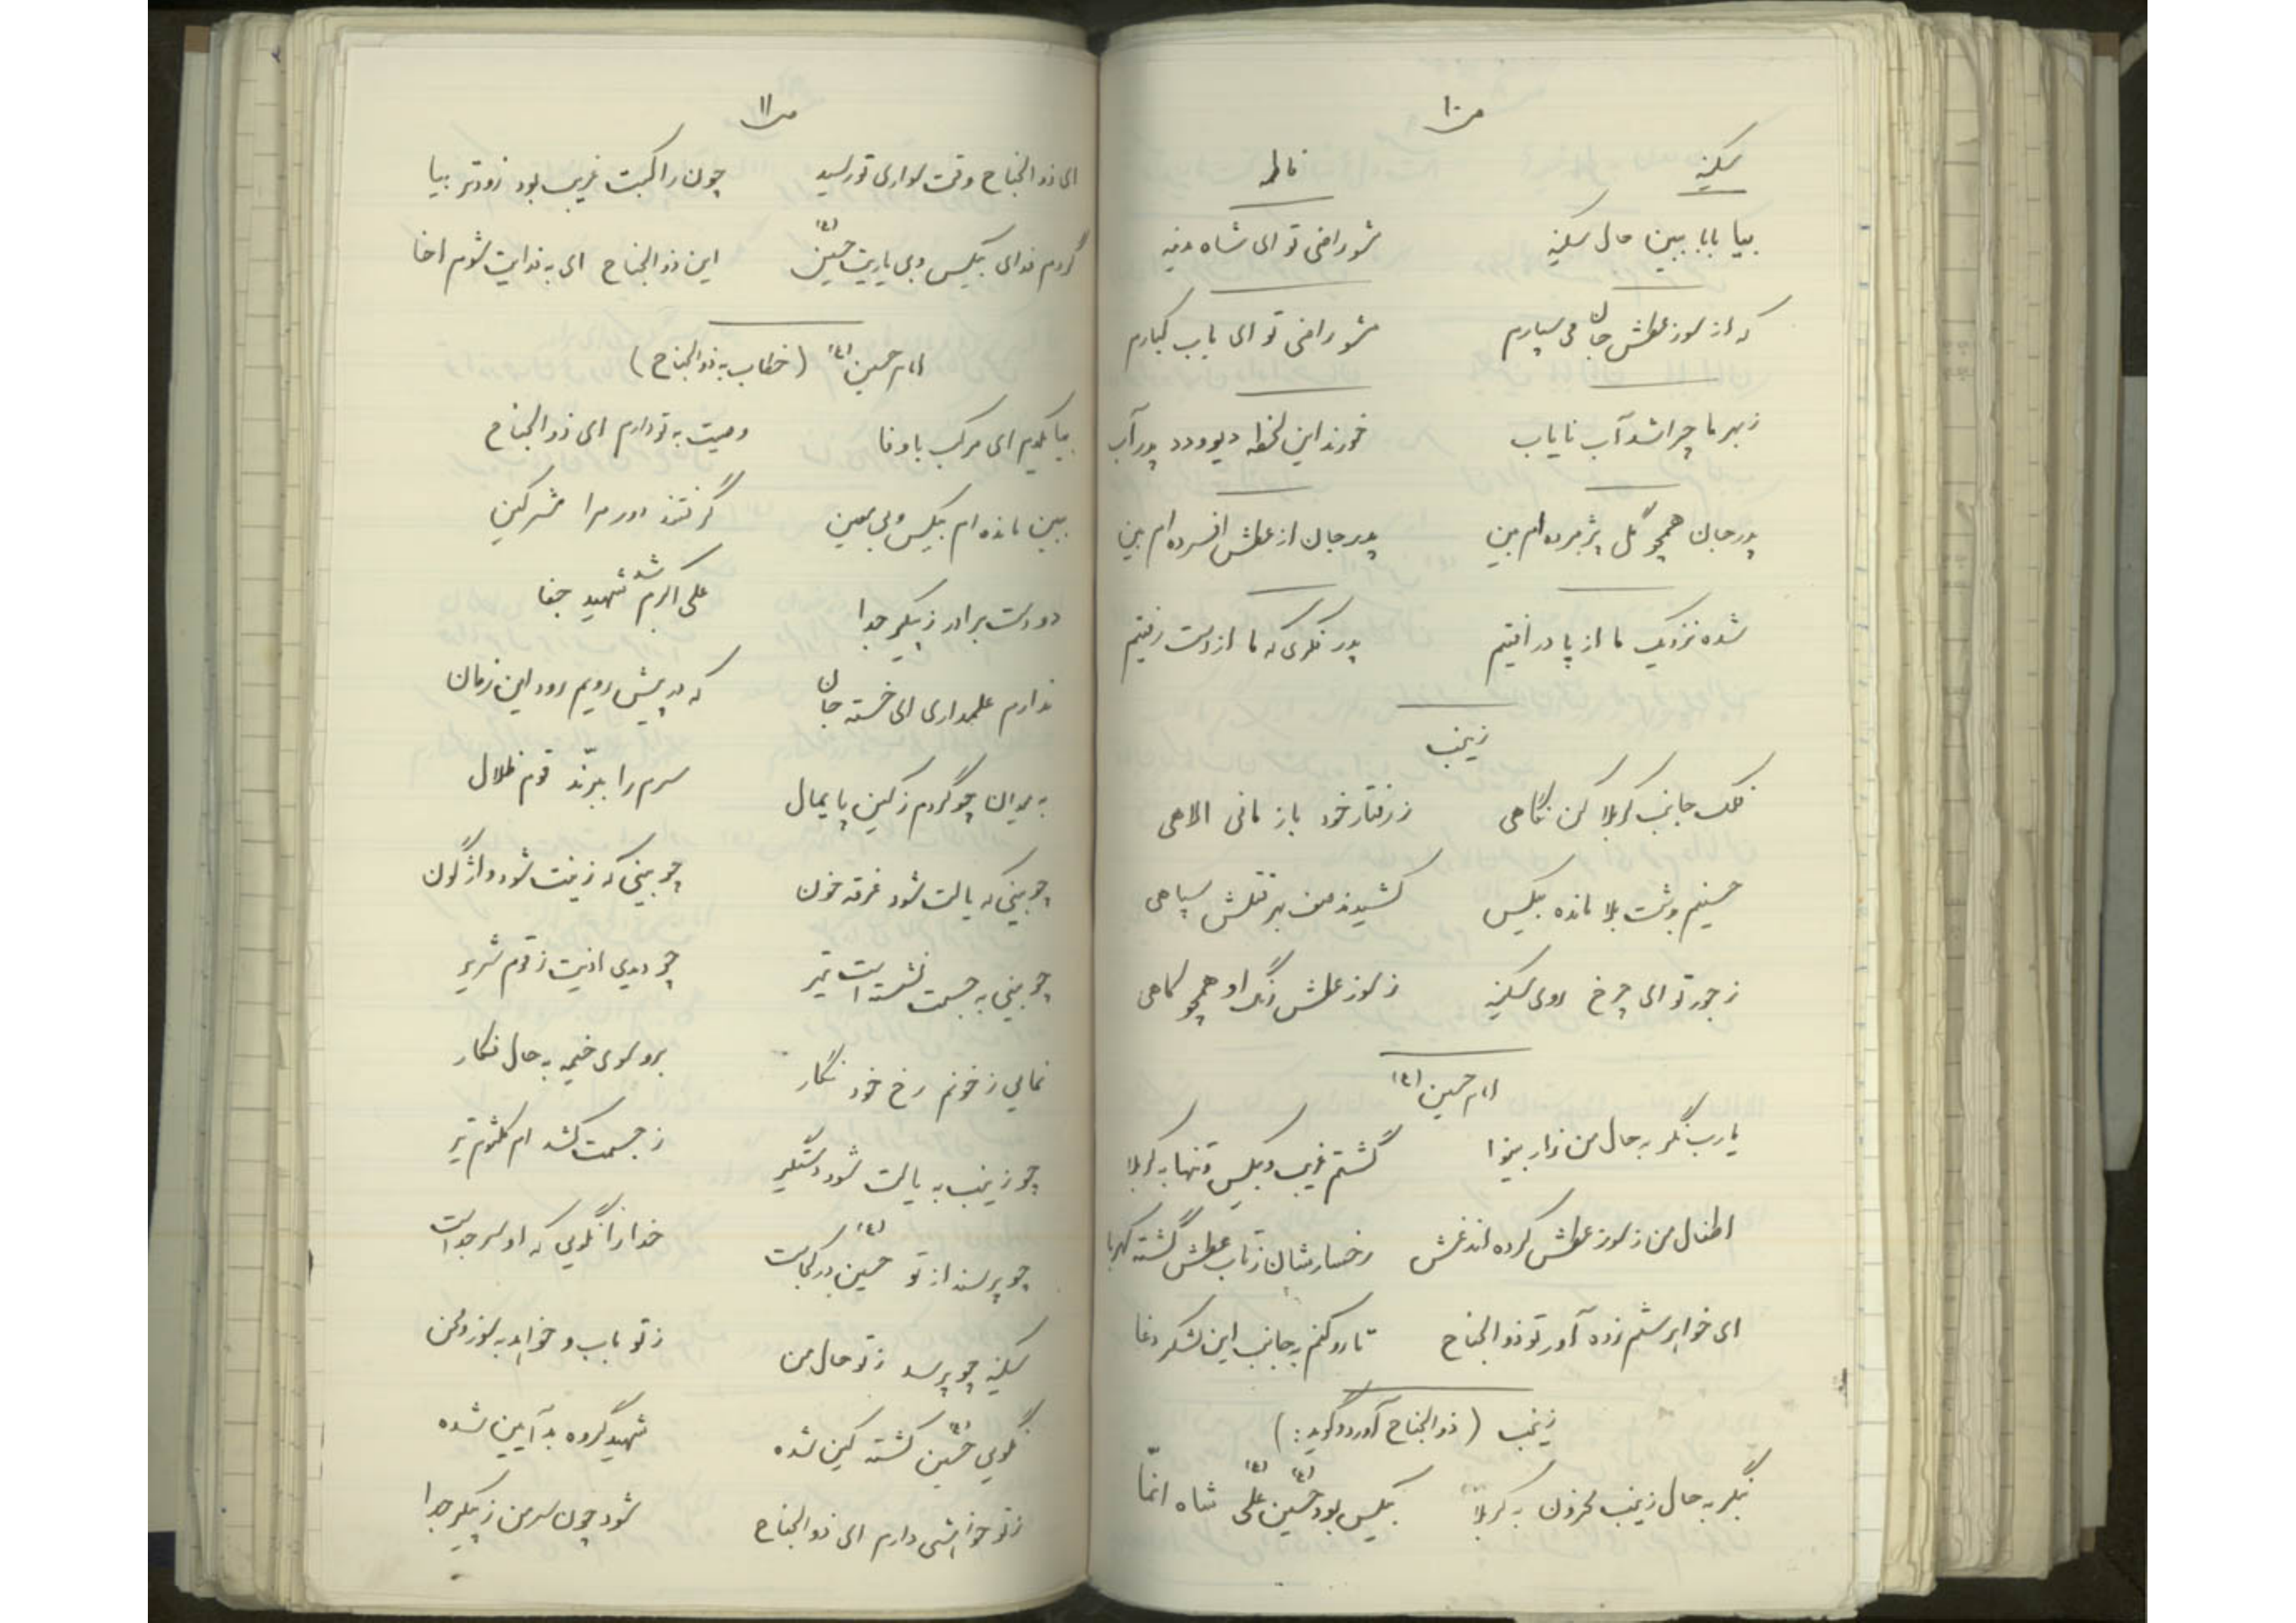 ص ۱۰
سکینه	فاطمه
بیا بابا ببین حال سکینه	مشو راضی تو ای شاه مدینه
که از سوز عطش جان می سپارم	مشو راضی تو ای باب کبارم
ز بهر ما چرا شد آب نایاب	خورند این لحظه دیو و دد پدر آب
پدر جان همچو گل پژمرده ام بین	پدر جان از عطش افسرده ام بین
شده نزدیک ما از پا در افتیم	پدر فکری که ما از دست رفتیم
زینب
فلک جانب کربلا کن نگاهی	ز رفتار خود باز مانی الاهی
حسینم بدشت بلا مانده بیکس	کشیدند صف بهر قتلش سپاهی
ز جور تو ای چرخ روی سکینه	ز سوز عطش رنگ او همچو کاهی
امام حسین (ع)
یا رب نگر به حال من زار بینوا	گشتم غریب و بیکس و تنها به کربلا
اطفال من ز سوز عطش کرده اند غش	رخسارشان ز تاب عطش گشته کهربا
ای خواهر ستم زده آور تو ذوالجناح	تا رو کنم به جانب این لشکر دغا
زینب (ذوالجناح آورد و گوید:)
بنگر به حال زینب محزون به کربلا	بیکس بود حسین (ع) علی (ع) شاه انمّا
ص ۱۱
ای ذوالجناح وقت سواری تو رسید	چون راکبت غریب بود زودتر بیا
گردم فدای بیکس و بی یاریت حسین (ع)	این ذوالجناح ای به فدایت شوم اخا
امام حسین (ع) (خطاب به ذوالجناح)
بیا گویم ای مرکب با وفا	وصیت به تو دارم ای ذوالجناح
ببین مانده ام بیکس و بی معین	گرفتند دور مرا مشرکین
دو دست برادر ز پیکر جدا	علی اکبرم شد شهید جفا
ندارم علمداری ای خسته جان	که به پیش رویم رود این زمان
به میدان چو گردم ز کین پایمال	سرم را ببرّند قوم ظلال
چو بینی که یالت شود غرقه خون	چو بینی که زینت شود واژگون
چو بینی به جسمت نشسته است تیر	چو دیدی اذیت ز قوم شریر
نمایی ز خونم رخ خود نگار	برو سوی خیمه به حال فکار
چو زینب به یالت شود دستگیر	ز جسمت کشد ام کلثوم تیر
چو پرسند از تو حسین (ع) در کجاست	خدا را نگویی که او سر جداست
سکینه چو پرسد ز تو حال من	ز تو باب و خواهد به سوز و محن
نگویی حسین (ع) کشته کین شده	شهید گروه بد آیین شده
ز تو خواهشی دارم ای ذوالجناح	شود چون سر من ز پیکر جدا